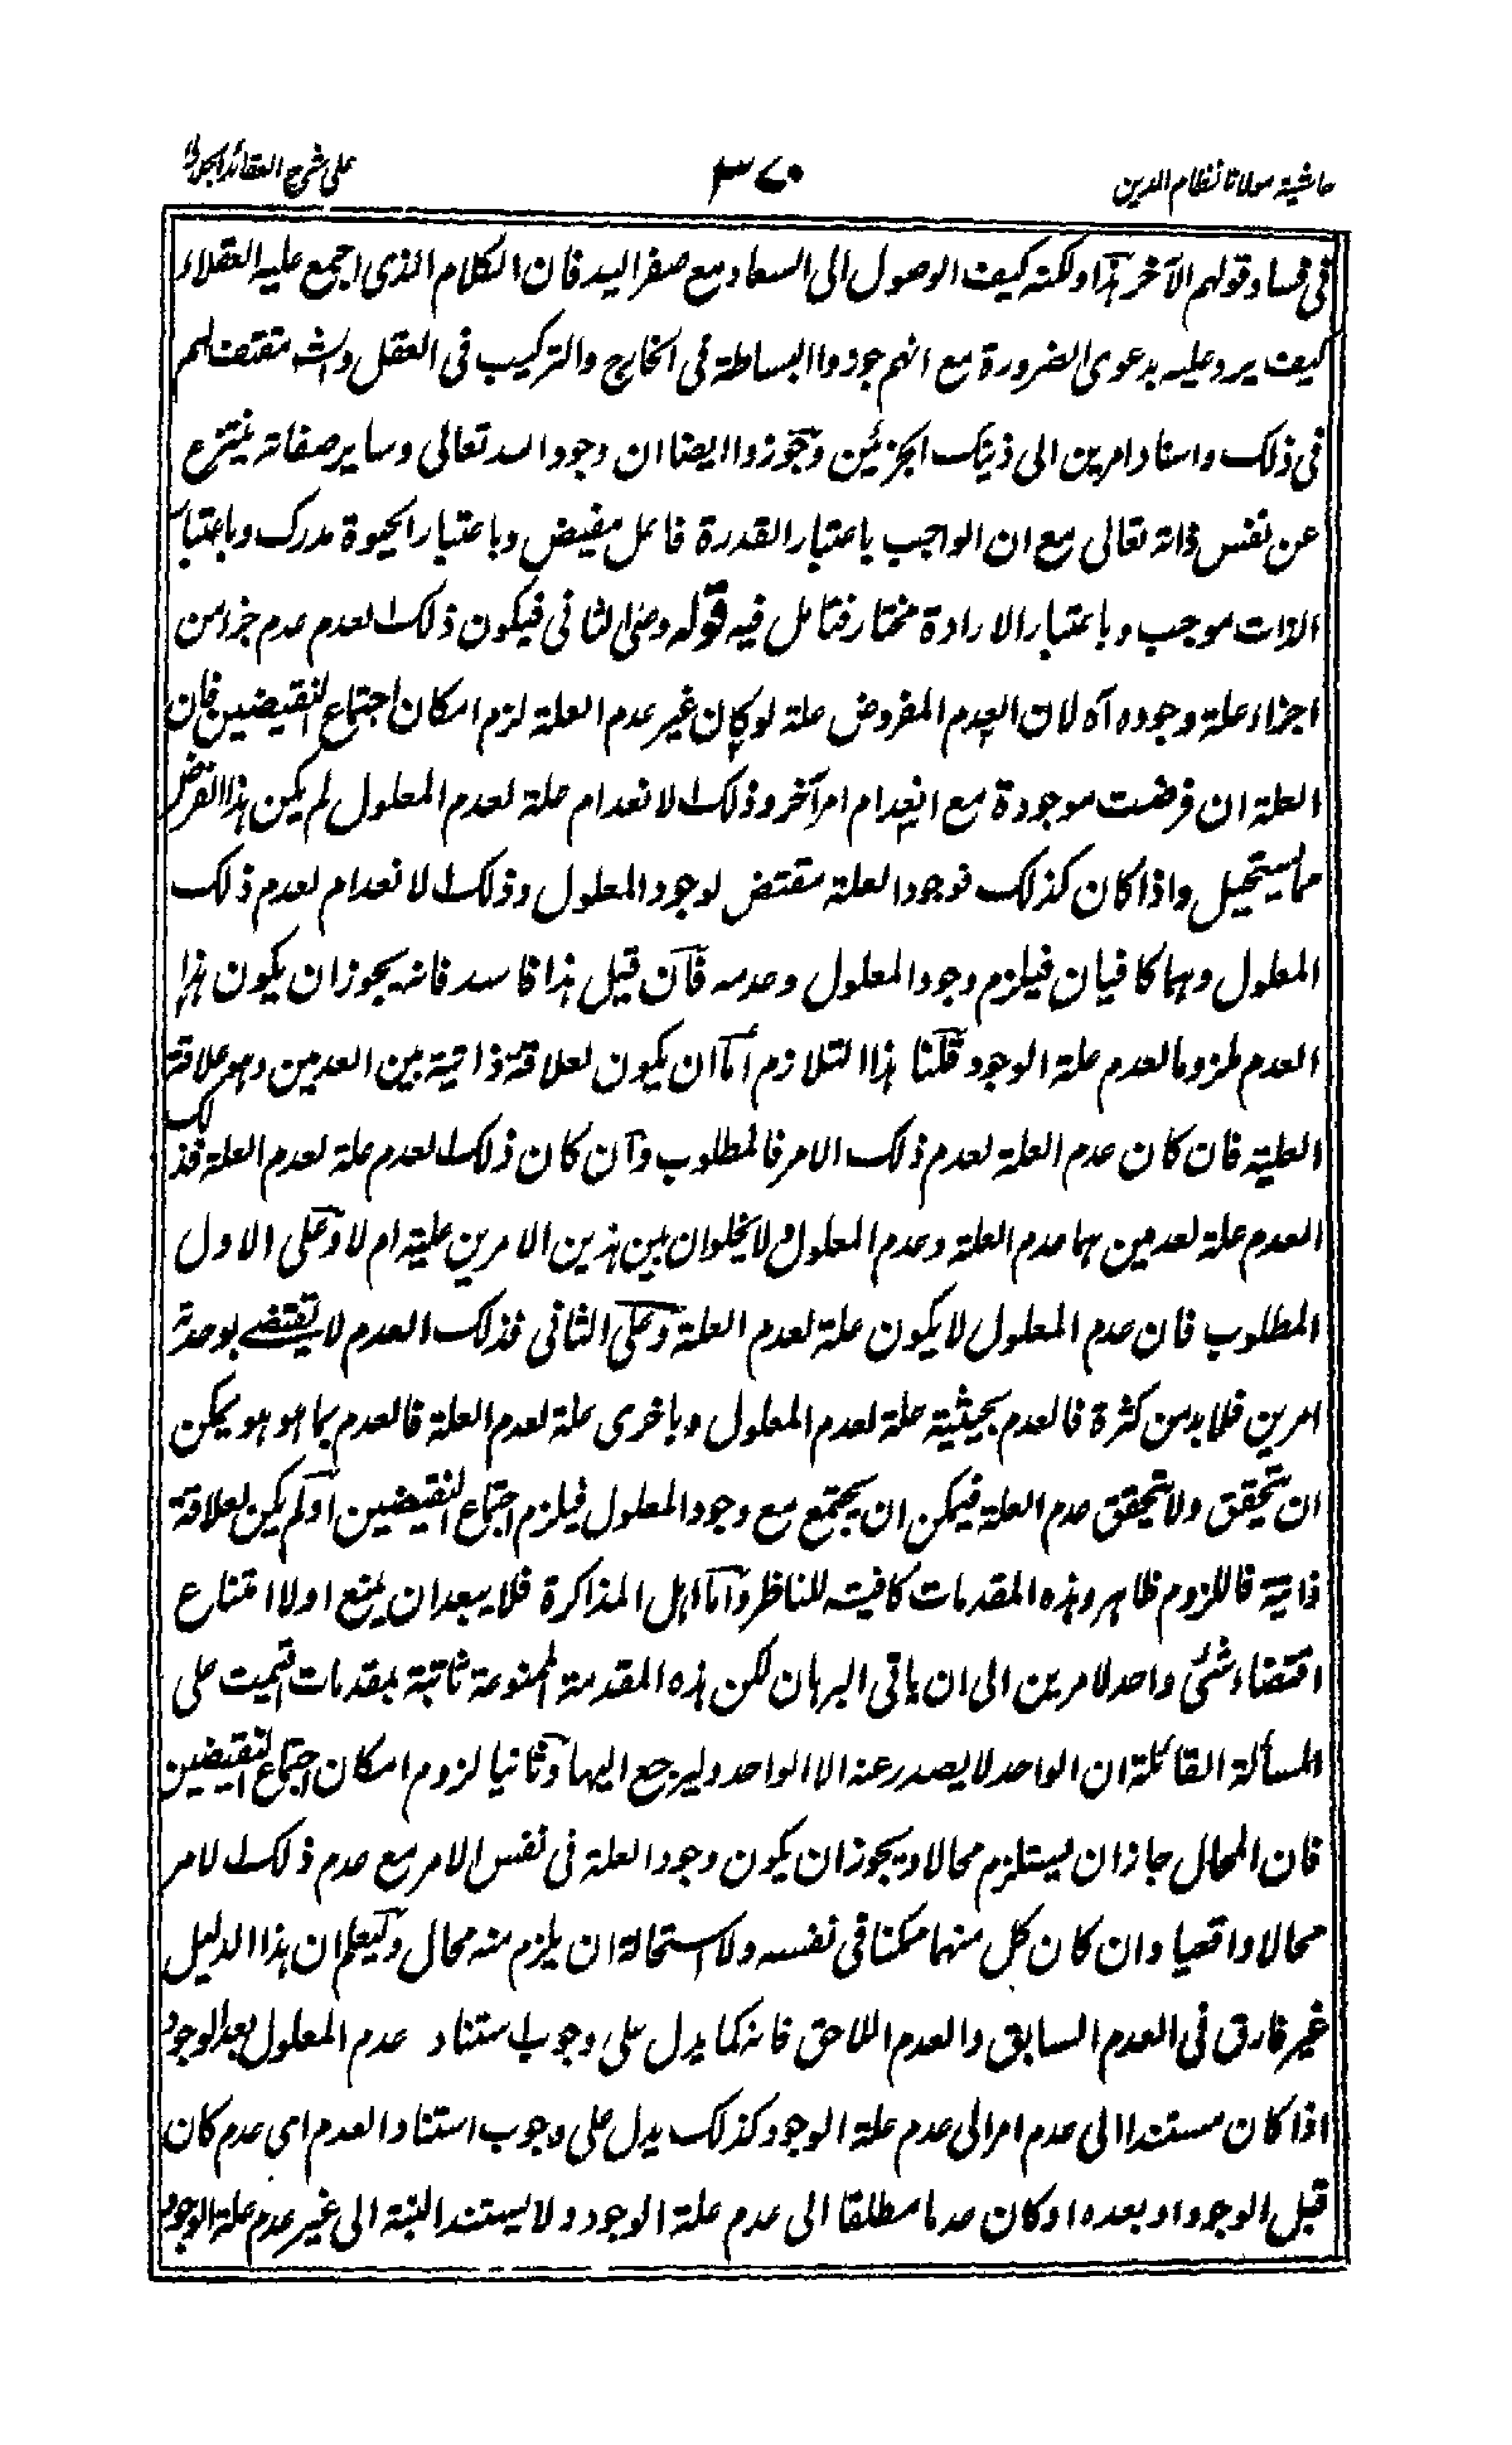 حاشية مولانا نظام الدين
٣٧٠
على شرح العقائد الجلالى
فى فساد قولهم الآخر هذا ولكنه كيف الوصول الى السعاد مع صفر اليد فان الكلام الذى اجمع عليه العقلاء
كيف يرد عليه بدعوى الضرورة مع انهم جوزوا البساطة فى الخارج والتركيب فى العقل
فى ذلك واسناد امرين الى ذينك الجزئين وجوزوا ايضا ان وجود الله تعالى وساير صفاته ينتزع
عن نفس ذاته تعالى مع ان الواجب باعتبار القدرة فاعل مفيض وباعتبار الحيوة مدرك وباعتبار
الذات موجب وباعتبار الارادة مختار فتامل فيه قوله وعلى الثانى فيكون ذلك العدم عدم جزء من
اجزاء علة وجوده آه لان العدم المفروض علة لو كان غير عدم العلة لزم امكان اجتماع النقيضين فان
العلة ان فرضت موجودة مع انعدام امر آخر وذلك الانعدام علة لعدم المعلول لم يكن هذا الفرض
مما يستحيل واذا كان كذلك فوجود العلة مقتض لوجود المعلول وذلك الانعدام لعدم ذلك
المعلول وهما كافيان فيلزم وجود المعلول وعدمه فان قيل هذا فاسد فانه يجوز ان يكون هذا
العدم ملزوما لعدم علة الوجود قلنا هذا التلازم اما ان يكون لعلاقة ذاتية بين العدمين وهو علاقة
العلية فان كان عدم العلة لعدم ذلك الامر فالمطلوب وان كان ذلك العدم علة لعدم العلة فذلك
العدم علة لعدمين هما عدم العلة وعدم المعلول ولا يخلو ان بين هذين الامرين علية ام لا وعلى الاول
المطلوب فان عدم المعلول لا يكون علة لعدم العلة وعلى الثانى فذلك العدم لا يقتضى بوحدته
امرين فلا بد من كثرة فالعدم بحيثية علة لعدم المعلول وباخرى علة لعدم العلة فالعدم بما هو هو يمكن
ان يتحقق ولا يتحقق عدم العلة فيمكن ان يجتمع مع وجود المعلول فيلزم اجتماع النقيضين او لم يكن لعلاقة
ذاتية فاللزوم ظاهر وهذه المقدمات كافية للناظر واما اهل المذاكرة فلا يبعد ان يمنع اولا امتناع
اقتضاء شئ واحد لامرين الى ان ياتى البرهان لكن هذه المقدمة الممنوعة ثابتة بمقدمات اقيمت على
المسألة القائلة ان الواحد لا يصدر عنه الا الواحد وليرجع اليها وثانيا لزوم امكان اجتماع النقيضين
فان المحال جاز ان يستلزم محالا ويجوز ان يكون وجود العلة فى نفس الامر مع عدم ذلك الامر
محالا واقعيا وان كان كل منهما ممكنا فى نفسه ولا استحالة ان يلزم منه محال وليعلم ان هذا الدليل
غير فارق فى العدم السابق والعدم اللاحق فانه كما يدل على وجوب استناد عدم المعلول بعد الوجود
اذا كان مستندا الى عدم امر الى عدم علة الوجود كذلك يدل على وجوب استناد العدم اى عدم كان
قبل الوجود او بعده او كان عدما مطلقا الى عدم علة الوجود ولا يستند البتة الى غير عدم علة الوجود